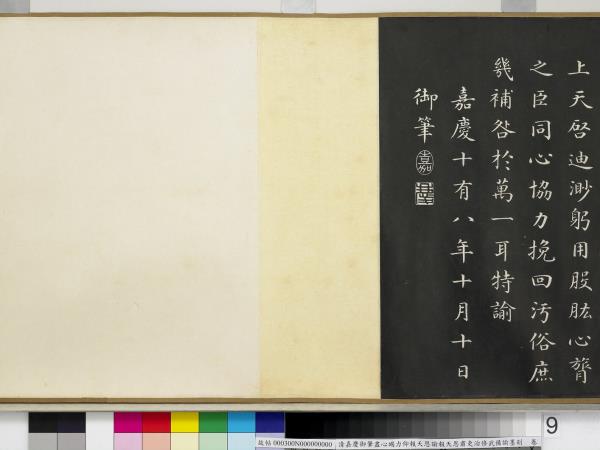 上天啓迪渺躬用股肱心膂
之臣同心協力挽回汚俗庶
幾補咎於萬一耳特諭
嘉慶十有八年十月十日
御筆
嘉
9
故帖 000300N000000000 清嘉慶御筆盡心竭力仰報天恩諭報天恩肅吏治修武備諭墨刻 卷